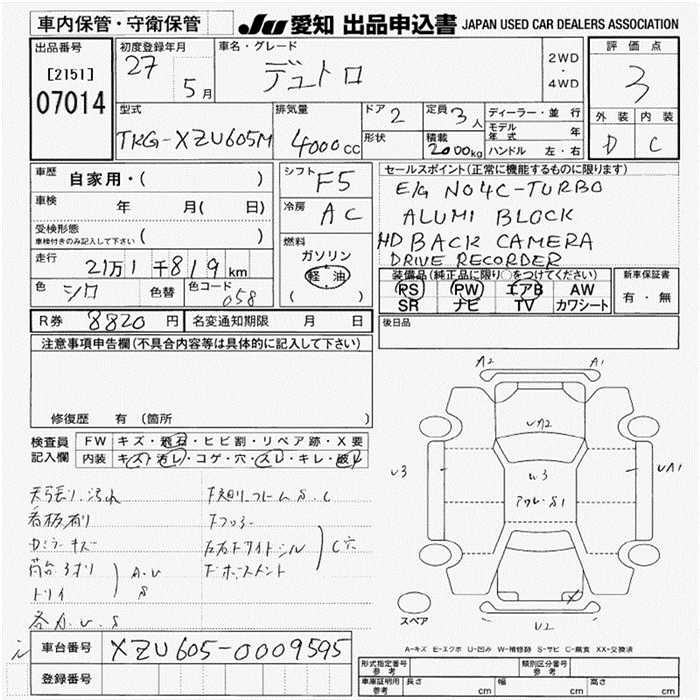 車内保管・守衛保管
JU 愛知 出品申込書 JAPAN USED CAR DEALERS ASSOCIATION
出品番号
[2151]
07014
初度登録年月
27
5月
車名・グレード
デュトロ
2WD
・
4WD
評価点
3
外装 内装
D C
型式
TKG-XZU605M
排気量
4000cc
ドア 2
形状
定員 3人
積載 2000kg
ディーラー・並行
モデル年式 年
ハンドル 左・右
車歴 自家用・( )
車検 年 月( 日)
受検形態
車検付きのみ記入して下さい ( )
走行 21万1千819km
色 シロ 色替 色コード 058
シフト F5
冷房 AC
燃料
ガソリン
軽油
( )
セールスポイント(正常に機能するものに限ります)
E/G NO4C-TURBO
ALUMI BLOCK
HD BACK CAMERA
DRIVE RECORDER
装備品(純正品に限り○をつけてください)
PS PW エアB AW
SR ナビ TV カワシート
新車保証書
有・無
R券 8820円 名変通知期限 月 日
後日品
注意事項申告欄(不具合内容等は具体的に記入して下さい)
修復歴 有 (箇所
検査員記入欄
FW キズ・飛石・ヒビ割・リペア跡・X要
内装 キズ・汚レ・コゲ・穴・スレ・キレ・破レ
天張り汚れ
看板有り
Dミラーキズ
荷台ヨオリ
トリイ
A.U
S
各カ.U.S
下廻りフレームS.C
左右サイドシル
C穴
A2 A1
UA2
U3
U3
アワレ・S1
UA1
X
U2
スペア
A-キズ E-エクボ U-凹み W-補修跡 S-サビ C-腐食 XX-交換済
車台番号 XZU605-0009595
登録番号
形式指定番号
参考
類別区分番号
参考
車庫証明用
参考
長さ cm 幅 cm 高さ cm